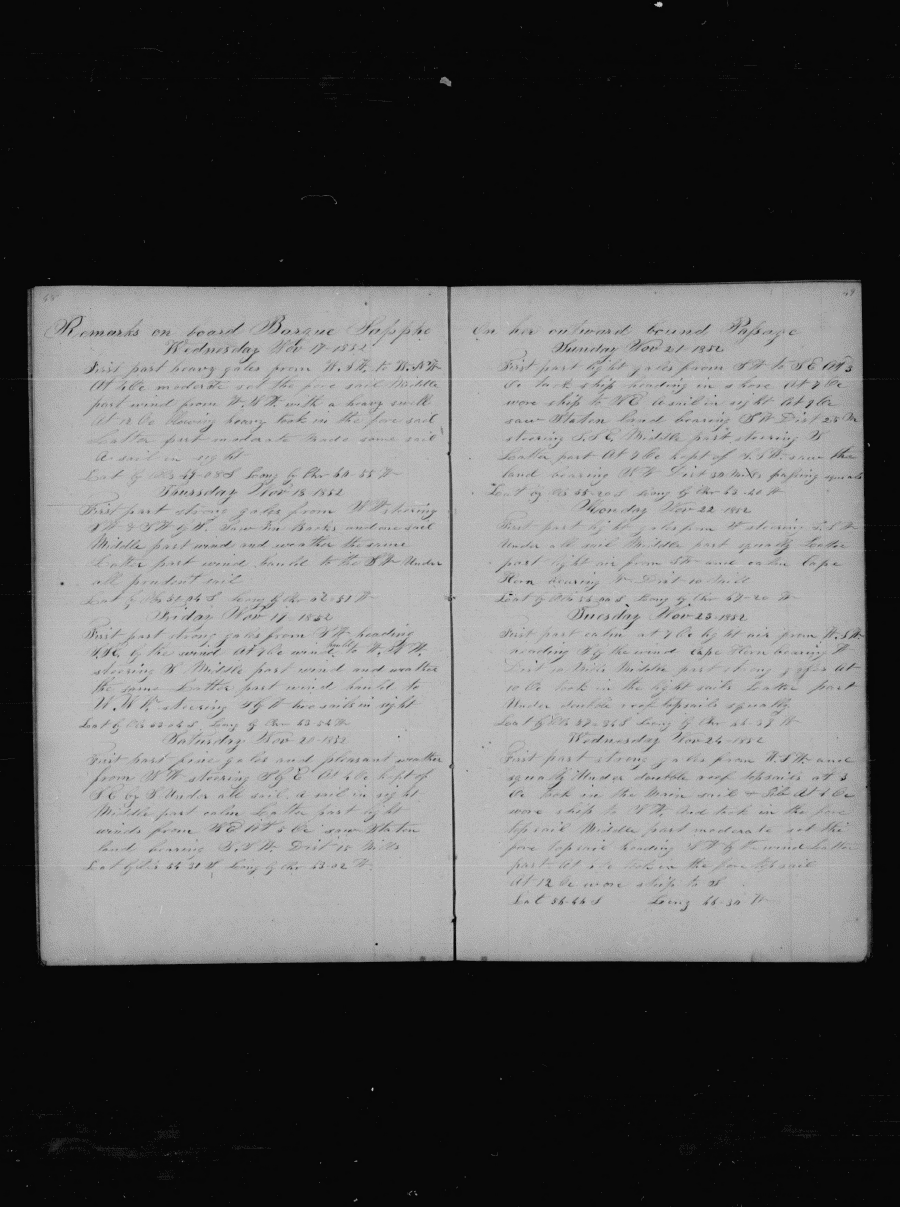 48
Remarks on board Barque Sappho
Wednesday Nov 17-1852
First part heavy gales from W.S.W. to W.N.W
At 4 Oc moderate set the fore sail Middle
part wind from W.N.W. with a heavy swell
At 12 Oc blowing heavy took in the fore sail
Latter part moderate made some sail
A sail in sight
Lat by Obs 49-08 S Long by Chr 60-55 W
Thursday Nov 18 1852
First part strong gales from
Saw and one sail
Middle part wind and weather the same
Latter part wind hauld to the Under
all prudent sail
Lat by Obs S Long by Chr 62-51 W
Friday Nov 19 1852
First part strong gales from S W heading
by the wind At 7 Oc wind hauld to W.N.W.
steering S Middle part wind and weather
the same Latter part wind hauld to
W.N.W. steering two sails in sight
Lat by Obs S Long by Chr W
Saturday Nov 20-1852
First part fine gales and pleasant weather
from steering At 4 Oc kept of
S E by S Under all sail A sail in sight
Middle part calm Latter part light
winds from At 5 Oc saw Staten
land bearing S.S.W. Dist 15 Mills
Lat by Obs 54-31 S Long by Chr 63-02 W
49
On her outward bound Passage
Sunday Nov 21-1852
First part light gales from S W to S E At 3
Oc tack ship heading in shore At 7 Oc
wore ship to N E A sail in sight At 9 Oc
saw Staten land bearing S W Dist 25 M
steering S.S.E, Middle part steering S
Latter part At 7 Oc kept of saw the
land bearing Dist passing squals
Lat by Obs 55-20 S Long by Chr 63-20 W
Monday Nov 22-1852
First part light gales from steering S.S W
Under all sail Middle part squaly Latter
part light air from S W and calm Cape
Horn bearing W Dist 10 Mills
Lat by Obs S Long by Chr 67-20 W
Tuesday Nov 23-1852
First part calm at 7 Oc light air from W.S W
heading S by the wind Cape Horn bearing W
Dist 10 Mills Middle part strong gales At
10 Oc took in the light sails Latter part
Under double reef topsails squaly
Lat by Obs S Long by Chr W
Wednesday Nov 24-1852
First part strong gales from W.S W and
squaly Under double reef topsails at 3
Oc took in the Main sail & Jib At 4 Oc
wore ship to N W, And took in the fore
topsail Middle part moderate set the
fore topsail heading by the wind Latter
part At Oc took in the fore topsail
At 12 Oc wore ship to S
Lat 56-44 S Long 66-30 W